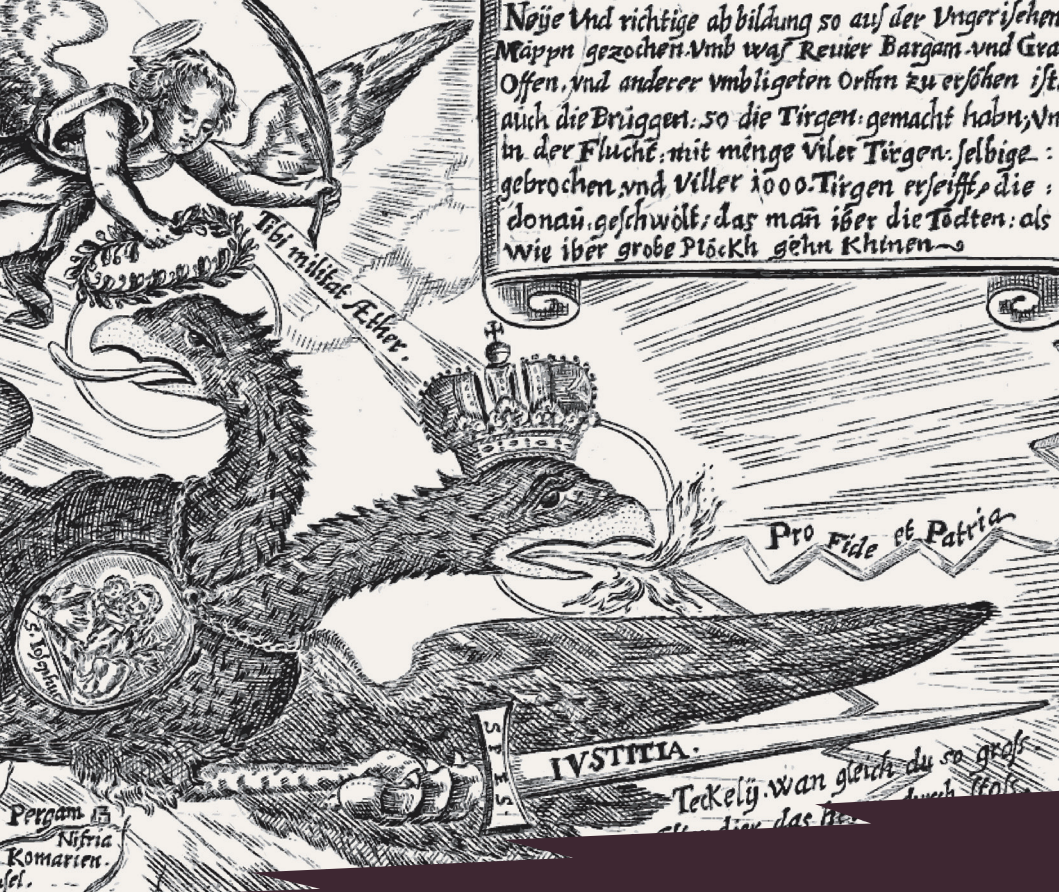 Neÿe Vnd richtige abbildung so auf der Vngerischen
Mappn gezochen. Vmb was Reuier Bargam. vnd Gra
Offen, vnd anderer vmbligeten Orthn zu ersöhen ist.
auch die Bruggen: so die Tirgen: gemacht habn, Vn
in der Flucht, mit menge Viler Tirgen: selbige :
gebrochen. vnd Viller 1000. Tirgen erseifft, die :
donau, geschwölt, das mañ iber die Todten: als
wie iber grobe Plöckh gehn Khinen
Tibi militat Æther.
Pro Fide et Patria
S. Iosephus
SPES.
IVSTITIA.
Teckelÿ. wan gleich du so gross.
durch
das
Pergam 13
Nifria
Komarien.
sel.